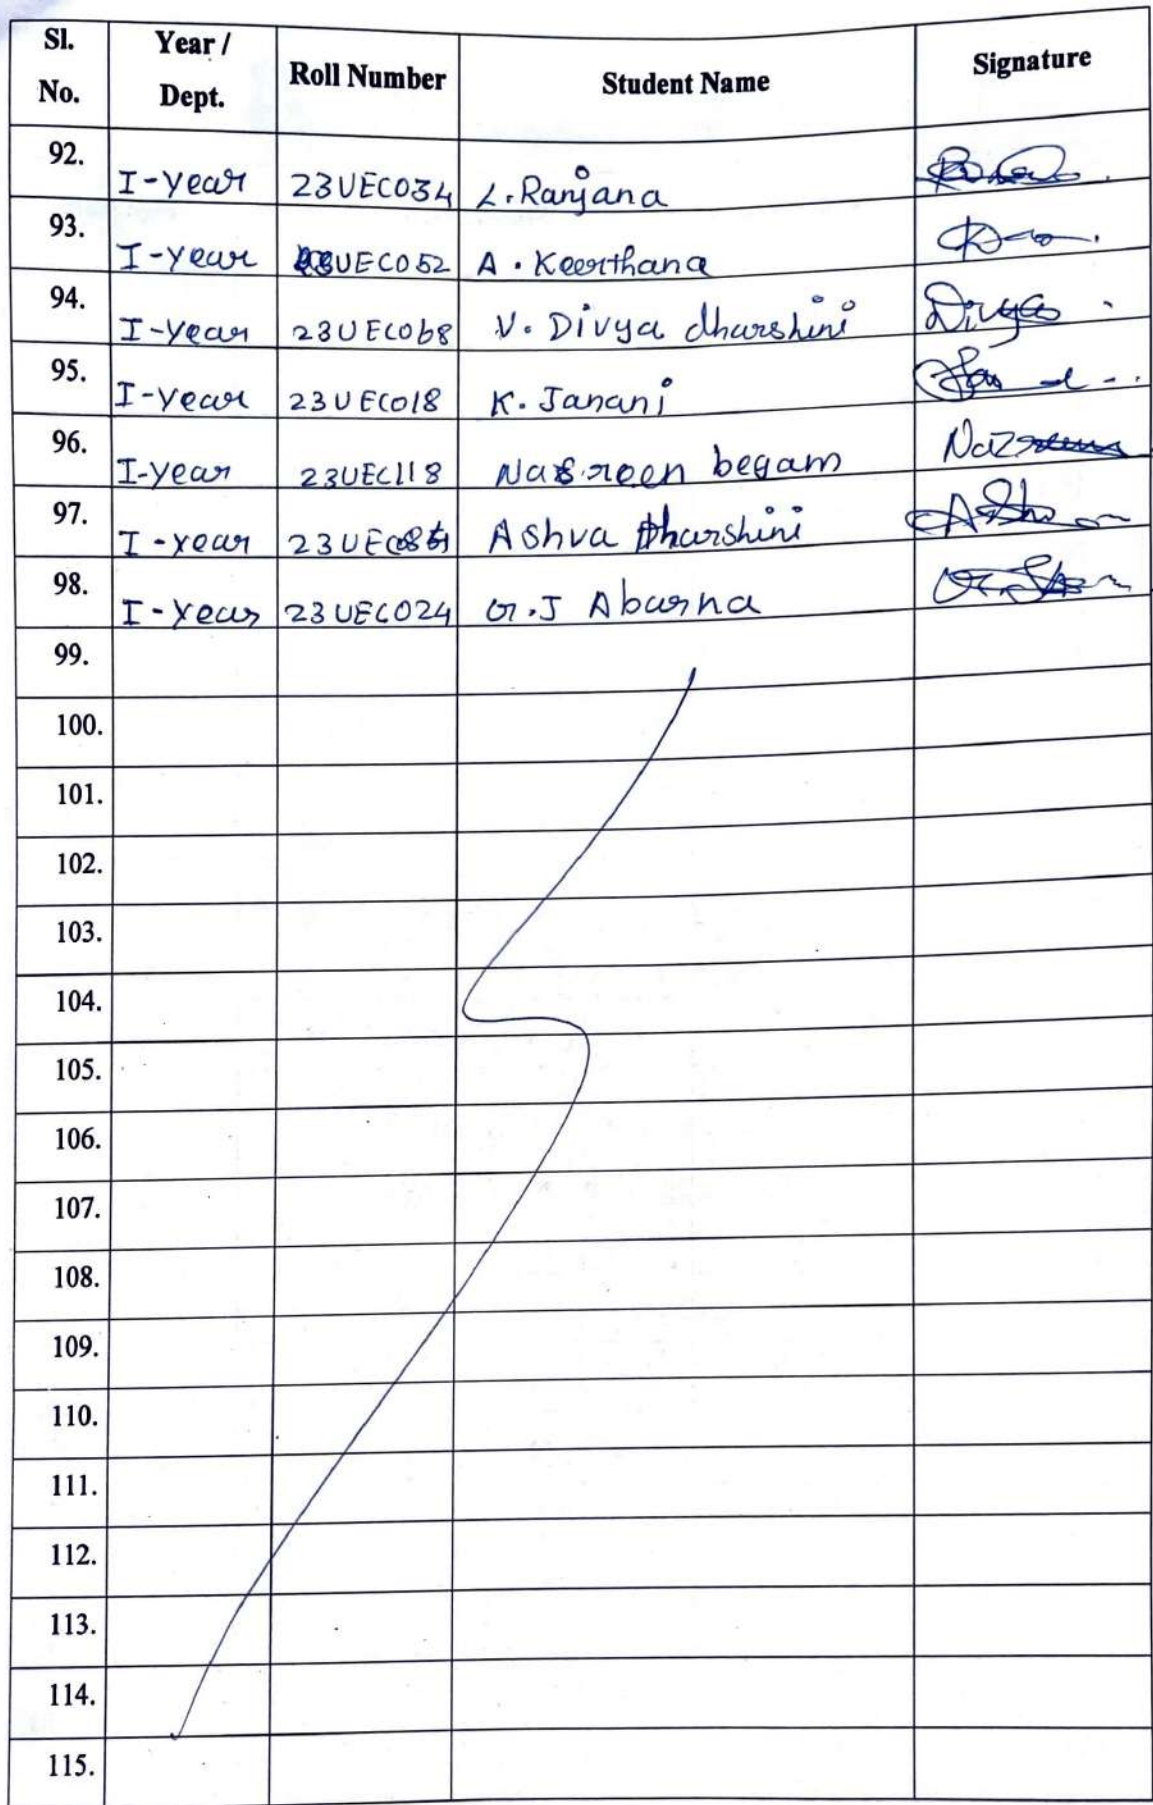 Sl. No. Year / Dept. Roll Number Student Name Signature
92. I-year 23UEC034 L.Ranjana
93. I-year 23UEC052 A. Keerthana
94. I-year 23UEC068 V. Divya dharshini Divya
95. I-year 23UEC018 K. Janani
96. I-year 23UEC118 Nasreen begam
97. I-year Ashva Dharshini
98. I-year 23UEC024 G.J Abarna
99.
100.
101.
102.
103.
104.
105.
106.
107.
108.
109.
110.
111.
112.
113.
114.
115.